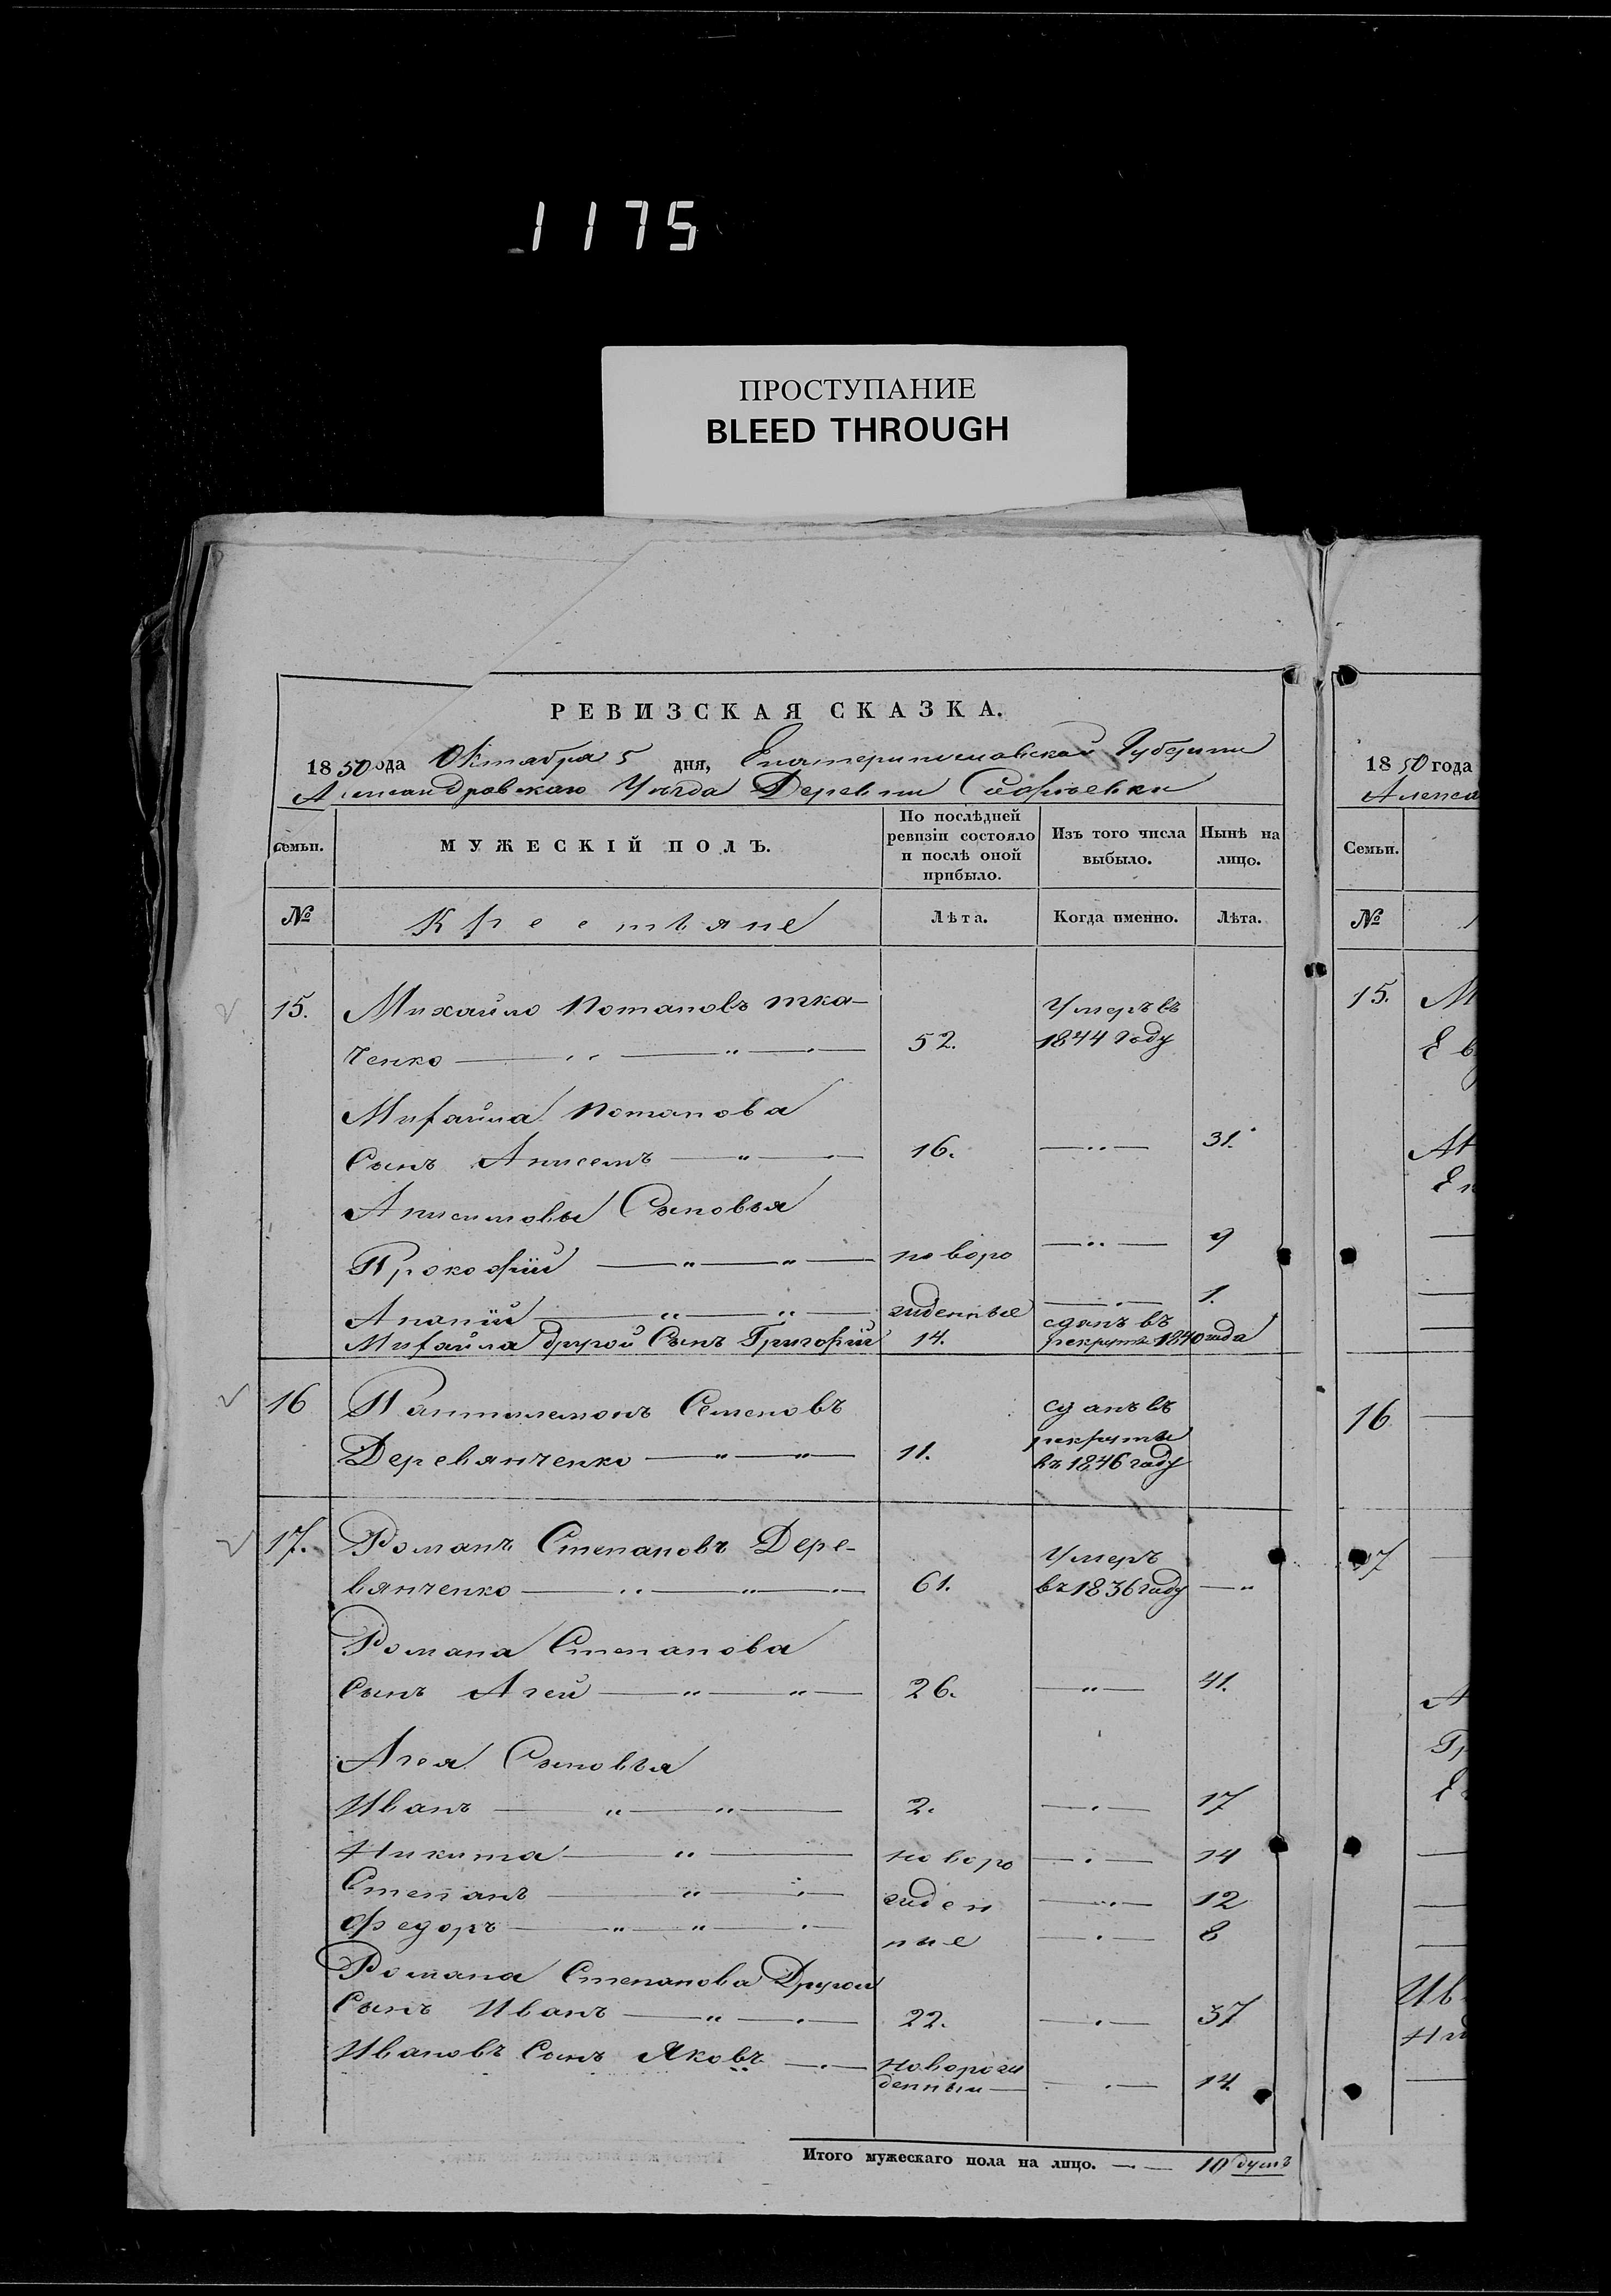 1175
ПРОСТУПАНИЕ
BLEED THROUGH
РЕВИЗСКАЯ СКАЗКА.
1850 года Октября 5 дня, Екатеринославской Губернии
Александровскаго Уѣзда Деревни Софіевки
Семьи.
МУЖЕСКІЙ ПОЛЪ.
По послѣдней ревизіи состояло и послѣ оной прибыло.
Изъ того числа выбыло.
Нынѣ на лицо.
№ Крестьяне Лѣта. Когда именно. Лѣта.
15. Михайло Потаповъ Тка- Умеръ въ
ченко 52. 1844 году
Михайла Потапова
Сынъ Анисемъ 16. 31.
Анисимовы Сыновья
Прокофій новоро 9
Ананій жденные 1.
Михайла другой Сынъ Григорій 14. сданъ въ рекруты 1840 года
16 Пантилемонъ Семеновъ сданъ въ
рекруты
Деревянченко 11. въ 1846 году
17. Романъ Степановъ Дере- Умеръ
вянченко 61. въ 1836 году
Романа Степанова
Сынъ Агей 26. 41.
Агея Сыновья
Иванъ 2. 17
Никита новоро 14
Степанъ жден 12
Федоръ ные 8
Романа Степанова Другой
Сынъ Иванъ 22. 37
Ивановъ Сынъ Яковъ новорож
денный 14.
Итого мужескаго пола на лицо. 10 душъ
1850 года
Алекса
Семьи.
№
15. М
Ев
16
17